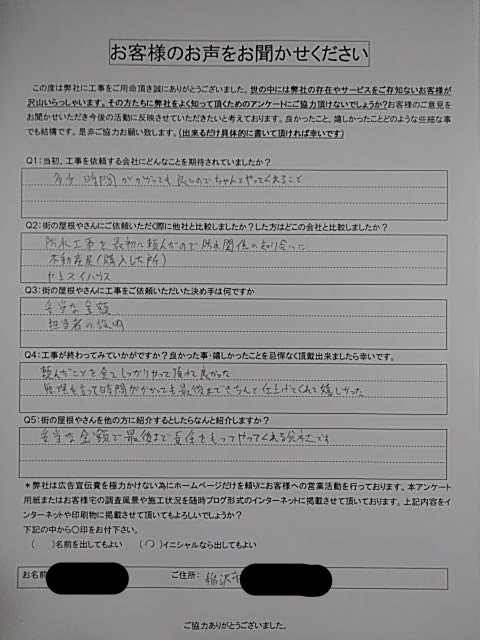 お客様のお声をお聞かせください
この度は弊社に工事をご用命頂き誠にありがとうございました。世の中には弊社の存在やサービスをご存知ないお客様が
沢山いらっしゃいます。その方たちに弊社をよく知って頂くためのアンケートにご協力頂けないでしょうか?お客様のご意見を
お聞かせいただき今後の活動に反映させていただきたいと考えております。良かったこと、嬉しかったことどのような些細な事
でも結構です。是非ご協力お願い致します。(出来るだけ具体的に書いて頂ければ幸いです)
Q1:当初、工事を依頼する会社にどんなことを期待されていましたか?
多少時間がかかっても良いのでちゃんとやってくれること
Q2:街の屋根やさんにご依頼いただく際に他社と比較しましたか?した方はどこの会社と比較しましたか?
防水工事を最初に頼んだので防水関係の知り合いに
不動産屋(購入した所)
ヤネスイハウス
Q3:街の屋根やさんに工事をご依頼いただいた決め手は何ですか
妥当な金額
担当者の説明
Q4:工事が終わってみていかがですか?良かった事・嬉しかったことを忌憚なく頂戴出来ましたら幸いです。
頼んだことを全てしっかりやって頂けて良かった
無理を言って時間がかかっても最後まできちんと仕上げてくれて嬉しかった
Q5:街の屋根やさんを他の方に紹介するとしたらなんと紹介しますか?
妥当な金額で最後まで責任をもってやってくれる会社です
*弊社は広告宣伝費を極力かけない為にホームページだけを頼りにお客様への営業活動を行っております。本アンケート
用紙またはお客様宅の調査風景や施工状況を随時ブログ形式のインターネットに掲載させて頂いております。上記内容をイ
ンターネットや印刷物に掲載させて頂いてもよろしいでしょうか?
下記の中から〇印をお付下さい。
( )名前を出してもよい (○)イニシャルなら出してもよい
お名前 ご住所: 稲沢市
ご協力ありがとうございました。